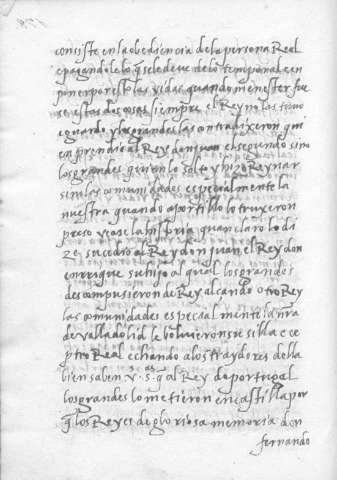 consiste en la obediencia de la persona Real
e pagandole lo q̃ se le deve de lo temporal e en
poner por esto las vidas quando menester fue
se estas dos cosas siempre el Reyno las tomo
e guardo y los grandes las contradixeron qui
en prendio al Rey don juan el segundo sino
los grandes quien lo solto y hizo Reynar
sino las comunidades especialmente la
nuestra quando a portillo lo truxeron
preso vease la historia quan claro lo di
ze, sucedio al Rey don juan el Rey don
enrrique su hijo al qual los grandes
descompusieron de Rey alcando otro Rey
las comunidades especialmente la nr̃a
de valladolid le volvieron su silla e ce
ptro Real echando a los traydores della
bien saben v. s. q̃ al Rey de portugal
los grandes lo metieron en castilla por
q̃ los Reyes de gloriosa memoria don
fernando